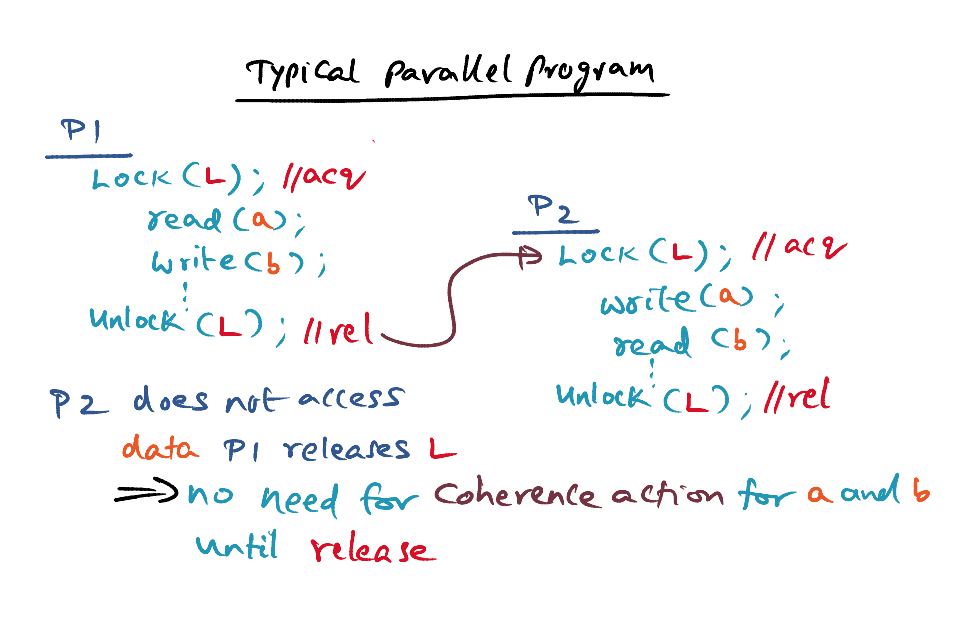 Typical parallel program
P1
Lock (L); //acq
read (a);
write (b);
Unlock (L); //rel
P2
Lock (L); //acq
write (a);
read (b);
Unlock (L); //rel
P2 does not access
data P1 releases L
⟹ no need for Coherence action for a and b
until release